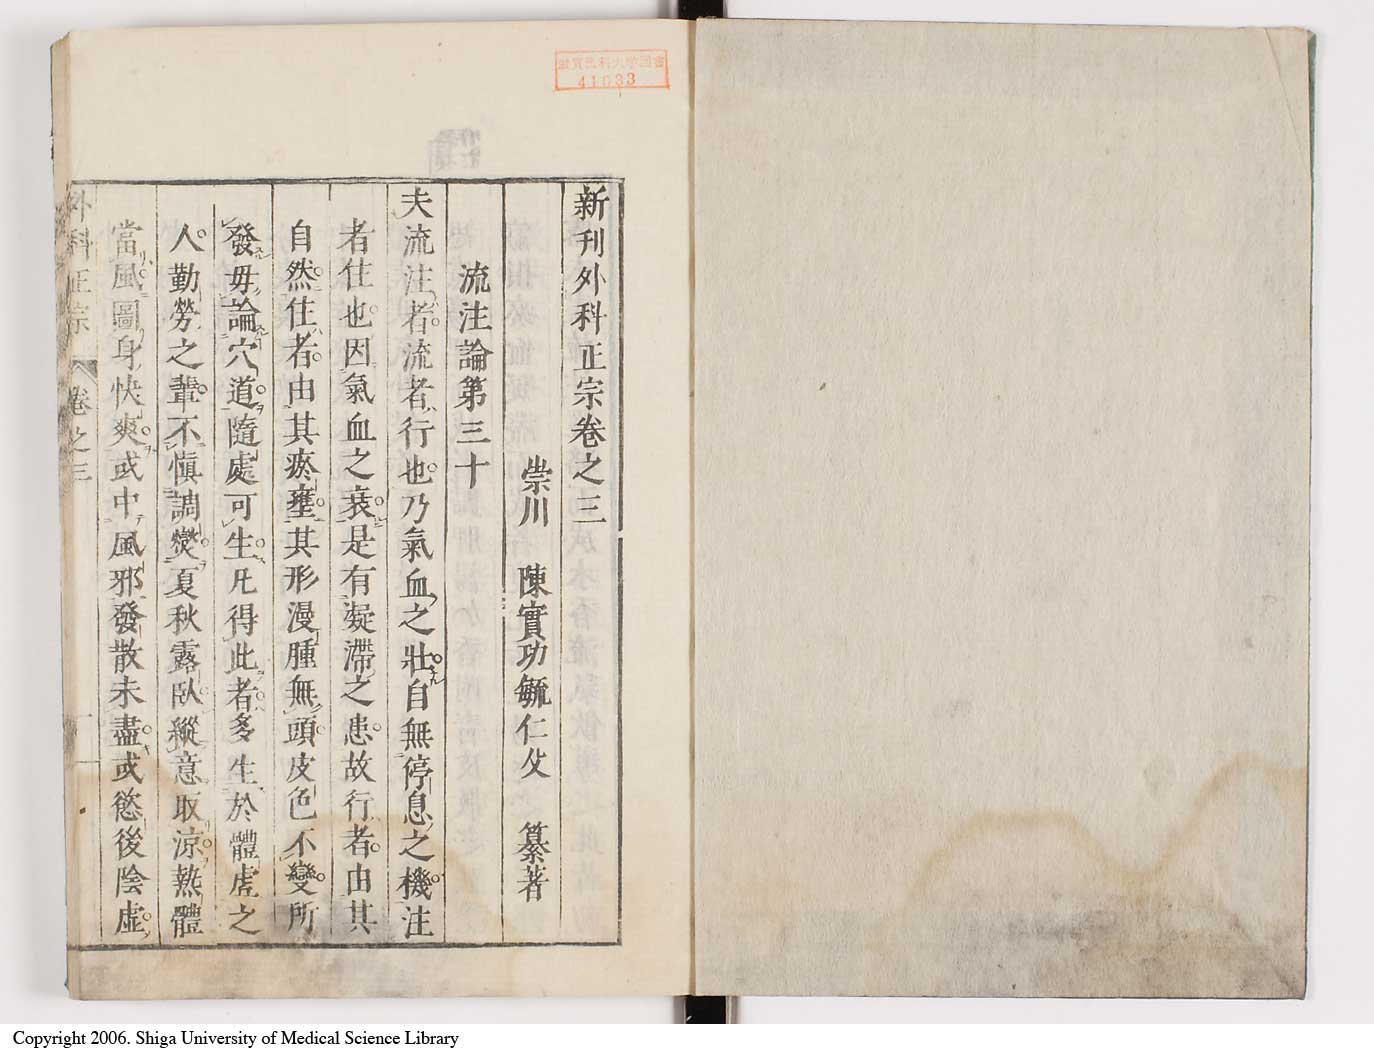 滋賀医科大学図書
41033
新刊外科正宗卷之三
崇川 陳實功毓仁父 纂著
流注論第三十
夫流注者流者行也乃氣血之壯自無停息之機注
者住也因氣血之衰是有凝滯之患故行者由其
自然住者由其瘀壅其形漫腫無頭皮色不變所
發毋論穴道隨處可生凡得此者多生於體虛之
人勤勞之輩不慎調爕夏秋露臥縱意取涼熱體
當風圖身快爽或中風邪發散未盡或慾後陰虛
外科正宗 卷之三 一
Copyright 2006. Shiga University of Medical Science Library